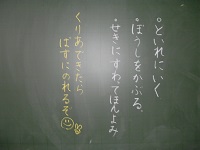 。といれにいく
。ぼうしをかぶる。
。せきにすわってほんよみ
くりあできたら
ばすにのれるぞ